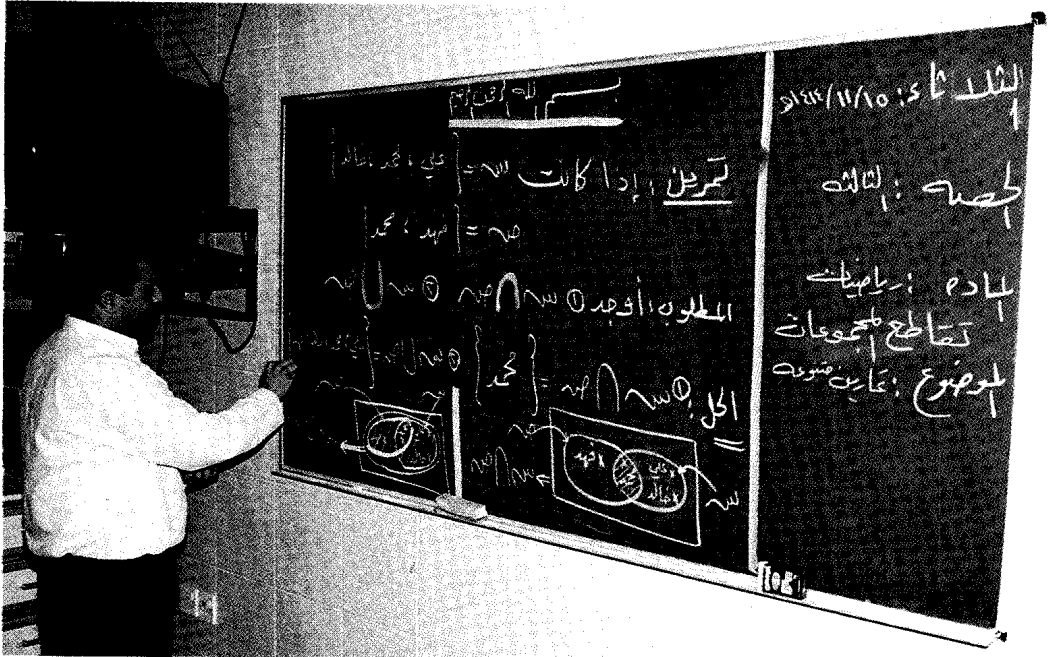 الثلاثاء: ١٤١٤/١١/١٥هـ
الحصه: الثالثه
المادة: رياضيات
تقاطع المجموعات
الموضوع: تمارين متنوعه
بسم الله الرحمن الرحيم
تمرين: إذا كانت س = {علي، محمد، خالد}
ص = {فهد، محمد}
المطلوب: أوجد ① س ∩ ص ② س ∪ ص
الحل: ① س ∩ ص = {محمد}
② س ∪ ص = {
ص
فهد
علي
خالد
س
س ∩ ص